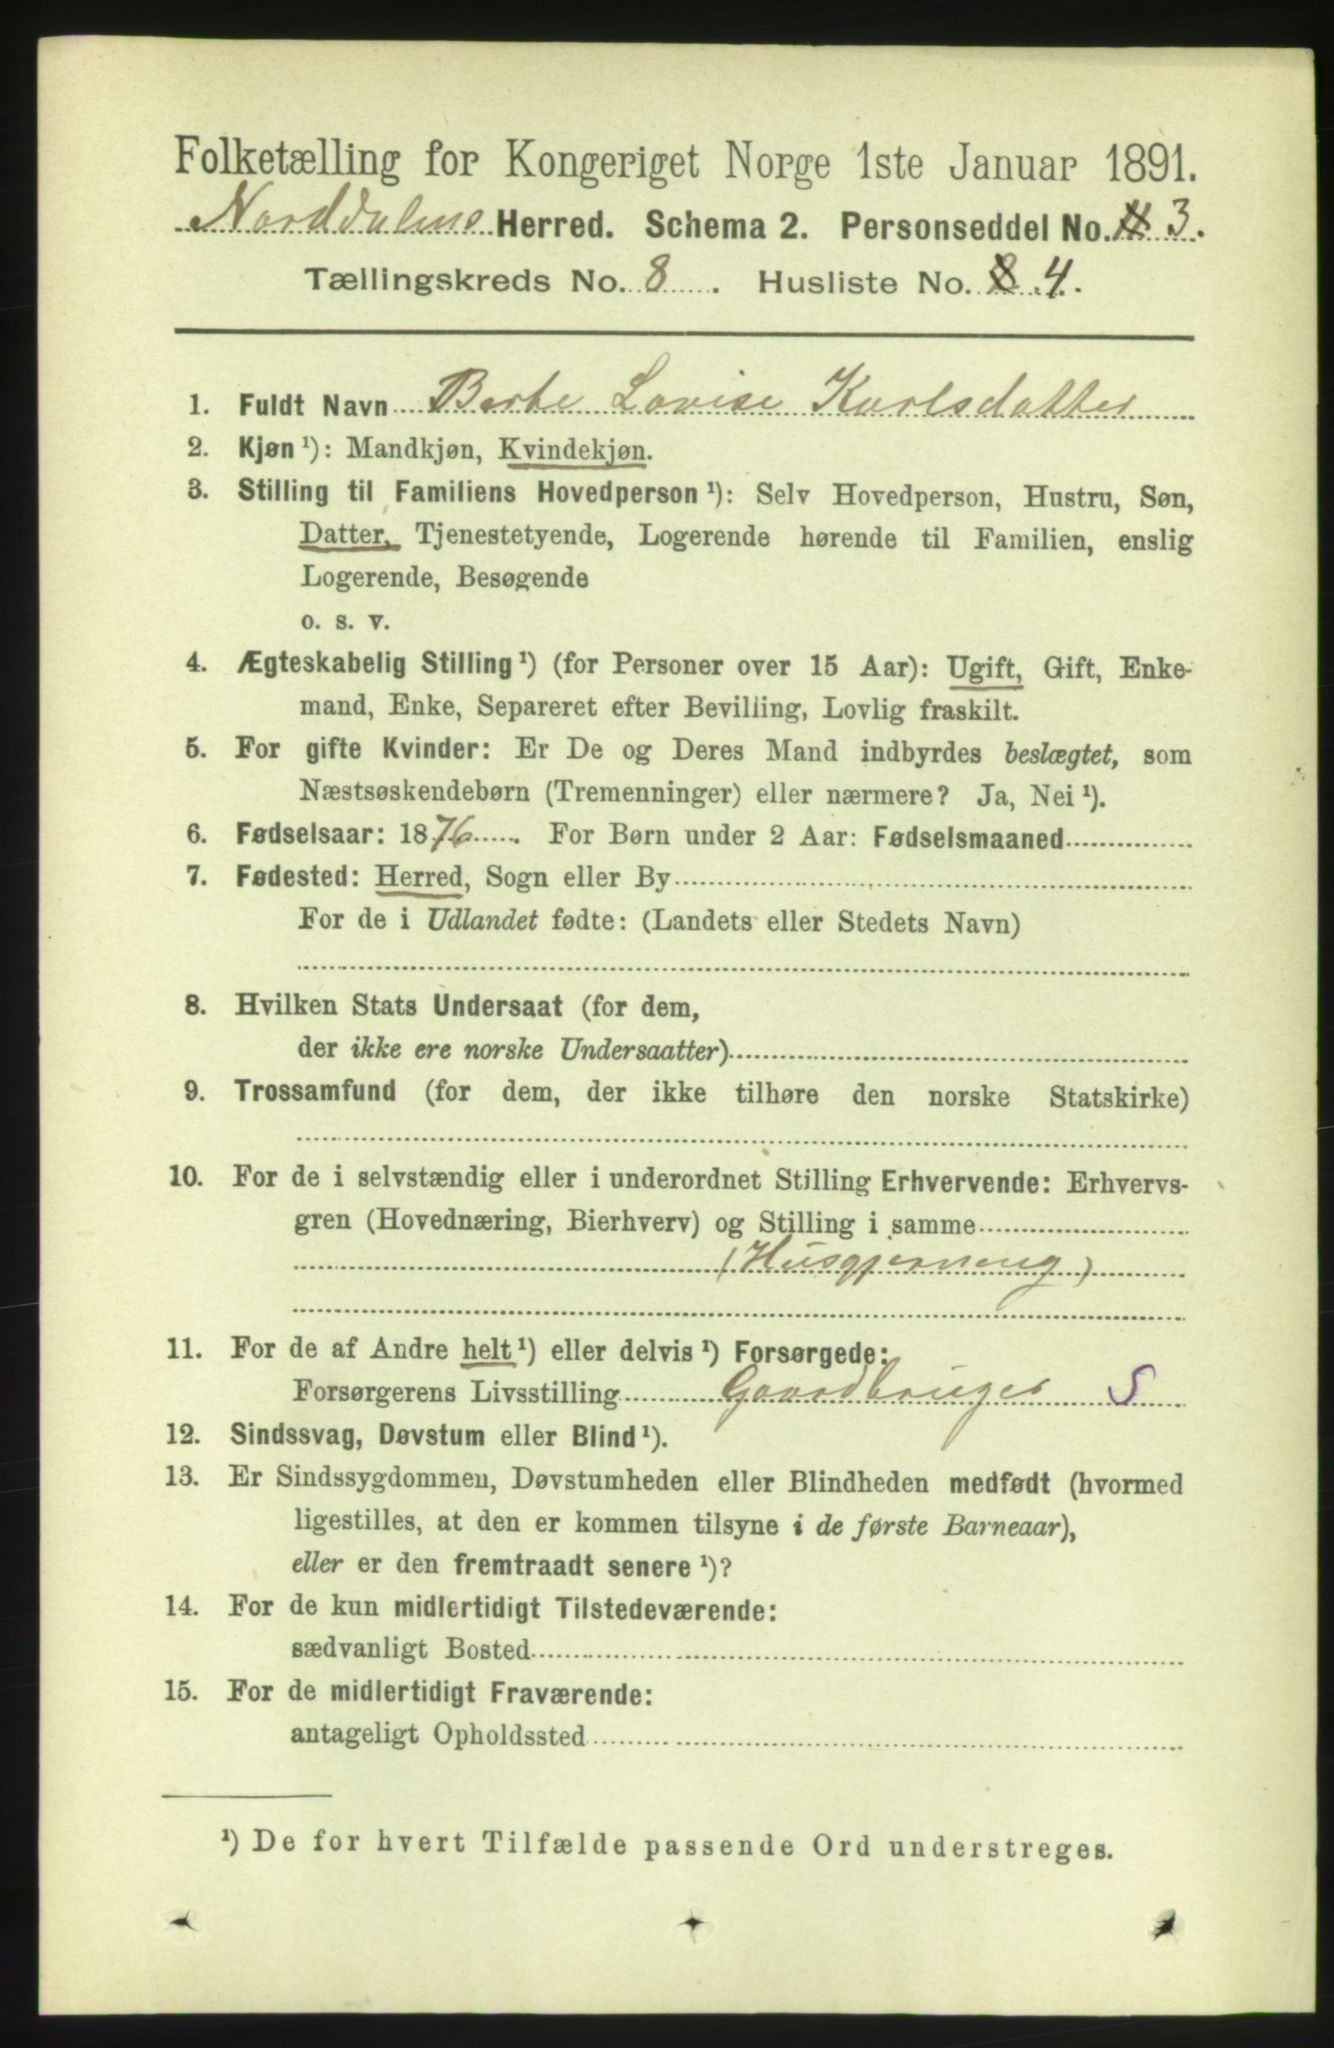 Folketælling for Kongeriget Norge 1ste Januar 1891.
Norddalens Herred. Schema 2. Personseddel No. 3.
Tællingskreds No. 8. Husliste No. 8 4.
1. Fuldt Navn Berte Lovise Karlsdatter
2. Kjøn ¹): Mandkjøn, Kvindekjøn.
3. Stilling til Familiens Hovedperson ¹): Selv Hovedperson, Hustru, Søn,
Datter, Tjenestetyende, Logerende hørende til Familien, enslig
Logerende, Besøgende
o. s. v.
4. Ægteskabelig Stilling ¹) (for Personer over 15 Aar): Ugift, Gift, Enke-
mand, Enke, Separeret efter Bevilling, Lovlig fraskilt.
5. For gifte Kvinder: Er De og Deres Mand indbyrdes beslægtet, som
Næstsøskendebørn (Tremenninger) eller nærmere? Ja, Nei ¹).
6. Fødselsaar: 1876. For Børn under 2 Aar: Fødselsmaaned
7. Fødested: Herred, Sogn eller By
For de i Udlandet fødte: (Landets eller Stedets Navn)
8. Hvilken Stats Undersaat (for dem,
der ikke ere norske Undersaatter)
9. Trossamfund (for dem, der ikke tilhøre den norske Statskirke)
10. For de i selvstændig eller i underordnet Stilling Erhvervende: Erhvervs-
gren (Hovednæring, Bierhverv) og Stilling i samme
(Husgjerning)
11. For de af Andre helt ¹) eller delvis ¹) Forsørgede:
Forsørgerens Livsstilling Gaardbruger S
12. Sindssvag, Døvstum eller Blind ¹).
13. Er Sindssygdommen, Døvstumheden eller Blindheden medfødt (hvormed
ligestilles, at den er kommen tilsyne i de første Barneaar),
eller er den fremtraadt senere ¹)?
14. For de kun midlertidigt Tilstedeværende:
sædvanligt Bosted
15. For de midlertidigt Fraværende:
antageligt Opholdssted
¹) De for hvert Tilfælde passende Ord understreges.